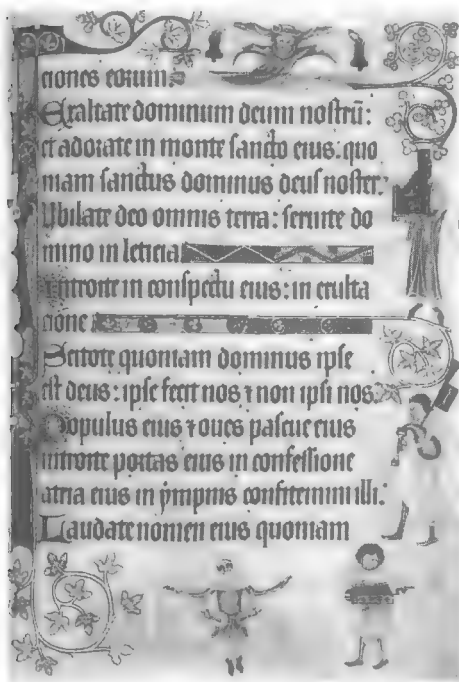 ciones eorum.
Exaltate dominum deum nostrū:
et adorate in monte sancto eius: quo
niam sanctus dominus deus noster.
Iubilate deo omnis terra: seruite do
mino in leticia
Introite in conspectu eius: in exulta
cione
Scitote quoniam dominus ipse
est deus: ipse fecit nos ⁊ non ipsi nos.
Populus eius ⁊ oues pascue eius
introite portas eius in confessione
atria eius in ympnis confitemini illi:
Laudate nomen eius quoniam